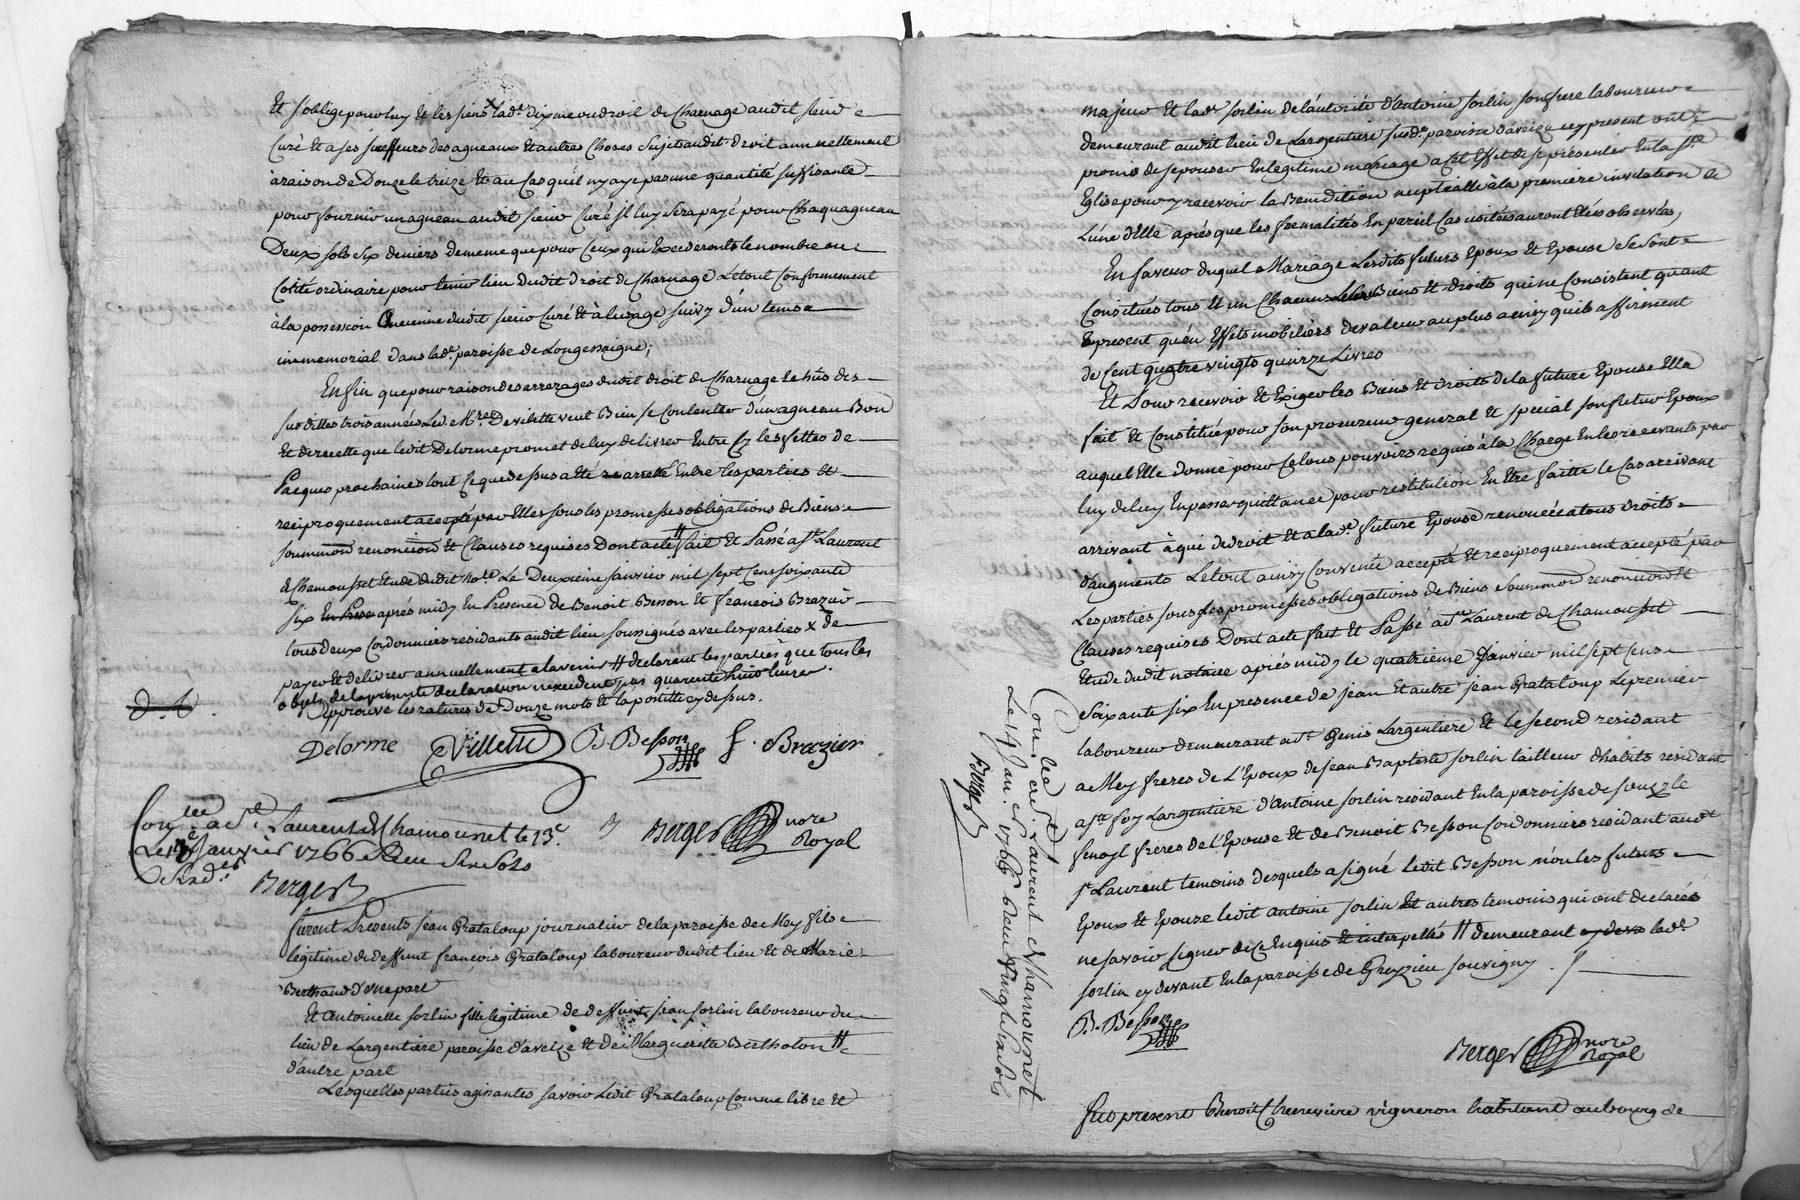 Et s'oblige pour luy Et les siens X lad.e dixme ou droit de Charnage audit sieur
Curé Et a ses successeurs des agneaux Et autres Choses Sujets audit droit annuellement
à raison de Douze le treize Et au Cas qu'il n'y aye pas une quantité suffisante
pour fournir un agneau audit sieur Curé il luy sera payé pour Chaqu agneau
Deux sols six deniers de meme que pour Ceux qui Excederonts le nombre ou
Cotité ordinaire pour tenir lieu dudit droit de Charnage Le tout Conformement
à la possession ancienne dudit sieur Curé Et à l'usage suivy d'un tems
immemorial dans lad.e paroisse de Longessaigne;
Enfin que pour raison des arrerages dudit droit de Charnage Echûs des
susdittes trois années Led. M.re Devilette veut Bien se Contenter d'un agneau Bon
Et de recette que ledit Delorme promet de luy delivrer Entre Cy les fettes de
Pacques prochaines tout Ce que dessus a Eté arretté Entre les parties Et
reciproquement accepté par Elles sous les promesses obligations de Biens
soummon renoncion Et Clauses requises Dont acte # fait Et Passé a St. Laurent
de Chamousset Etude dudit no.re Le Deuxieme Janvier mil sept Cens soixante
six après midy En Presence de Benoit Besson Et françois Brazier
tous deux Cordonniers residants audit lieu soussignés avec les parties X de
payer Et delivrer annuellement a l'avenir # declarant les parties que tous les
objets de la presente declaration n'excedent pas quarente huit livres
Approuvé les ratures de Douze mots Et la postille cy dessus.
Delorme Villette B. Besson F. Brazier
Con.lée a St. Laurent de Chamousset le 13.e
Janvier 1766 Reçu
Berger
Berger no.re Royal
furent Presents Jean Grataloup journalier de la paroisse de Mey fils
legitime de deffunt françois Grataloup laboureur dudit lieu Et de Marie
Berthaud d'une part
Et Antoinette Sorlin fille legitime de deffunt Jean Sorlin laboureur du
lieu de Largentiere paroisse d'aveize Et de Marguerite Bertholon #
d'autre part
Lesquelles parties agissantes savoir Ledit Grataloup Comme libre Et
majeur Et lad.e Sorlin de l'autorité d'antoine Sorlin son frere laboureur
demeurant audit lieu de Largentiere susd.e paroisse d'aveize icy present ont
promis de se pouser En legitime mariage a Cet Effet de se presenter En la Ste.
Eglise pour y recevoir la Benediction nuptialle à la premiere invitation de
L'une d'Elle après que les formalités En pareil Cas usitées auront Eté observées,
En faveur duquel Mariage Lesdits futurs Epoux Et Epouse se sont
Constitués tous Et un Chacuns Leurs Biens Et droits qui ne Consistent quant
a present qu'en Effets mobiliers de valeur au plus ainsy qu'ils affirment
de Cent quatre vingts quinze Livres
Et Pour recevoir Et Exiger les Biens Et droits de la future Epouse Elle
fait Et Constitué pour son procureur general Et special son futur Epoux
auquel Elle donne pour Ce tous pouvoirs requis à la Charge En les recevants par
luy de luy En passer quittance pour restitution En Etre faitte le Cas arrivant
arrivant à qui de droit Et a lad.e future Epouse renoncée a tous droits
d'augments Le tout ainsy Convenu accepté Et reciproquement accepté par
Les parties sous Les promesses obligations de Biens soummon renoncion Et
Clauses requises Dont acte fait Et Passé a St. Laurent de Chamousset
Etude dudit notaire après midy le quatrieme Janvier mil sept Cens
Soixante six En presence de Jean Et autre Jean Grataloup Le premier
laboureur demeurant a St. Genis Largentiere Et le second residant
a Mey freres de L'Epoux de Jean Baptiste Sorlin tailleur d'habits residant
a Ste. foy Largentiere d'Antoine Sorlin residant En la paroisse de Souzy le
freres de l'Epouse Et de Benoit Besson Cordonnier residant aud.t
St. Laurent temoins desquels a signé ledit Besson non les futurs
Epoux Et Epouse ledit antoine Sorlin Et autres temoins qui ont declarés
ne savoir signer de Ce Enquis Et interpellés # demeurant lad.e
Sorlin cy devant En la paroisse de Grezieu Souvigny.
B. Besson
Berger no.re Royal
Con.lé a St. Laurent de Chamousset
Le Jan. 1766
Berger
fut present Benoit vigneron habitant au bourg de